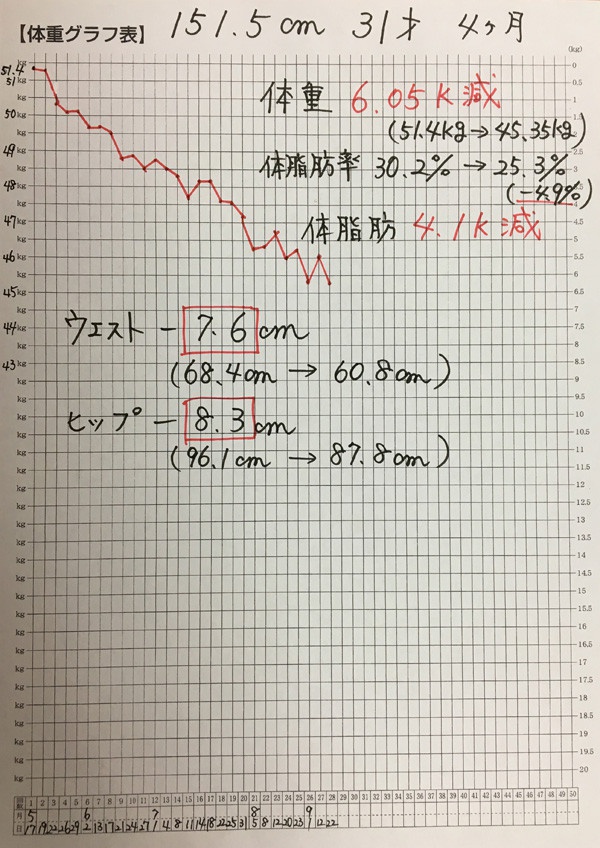 【体重グラフ表】 151.5cm 31才 4ヶ月
体重 6.05K減
(51.4kg→45.35kg)
体脂肪率 30.2%→25.3%
(-4.9%)
体脂肪 4.1K減
ウエスト -7.6cm
(68.4cm→60.8cm)
ヒップ -8.3cm
(96.1cm→87.8cm)
kg
51.4
51 kg
50 kg
49 kg
48 kg
47 kg
46 kg
45 kg
44 kg
43 kg
kg
kg
kg
kg
kg
kg
kg
kg
kg
kg
kg
(kg)
0
0.5
1
1.5
2
2.5
3
3.5
4
4.5
5
5.5
6
6.5
7
7.5
8
8.5
9
9.5
10
10.5
11
11.5
12
12.5
13
13.5
14
14.5
15
15.5
16
16.5
17
17.5
18
18.5
19
19.5
20
回数 1 2 3 4 5 6 7 8 9 10 11 12 13 14 15 16 17 18 19 20 21 22 23 24 25 26 27 28 29 30 31 32 33 34 35 36 37 38 39 40 41 42 43 44 45 46 47 48 49 50
月 5 6 7 8 9
日 17 19 22 26 29 2 13 17 21 24 27 1 4 8 11 14 18 22 25 31 5 8 12 20 23 1 12 22